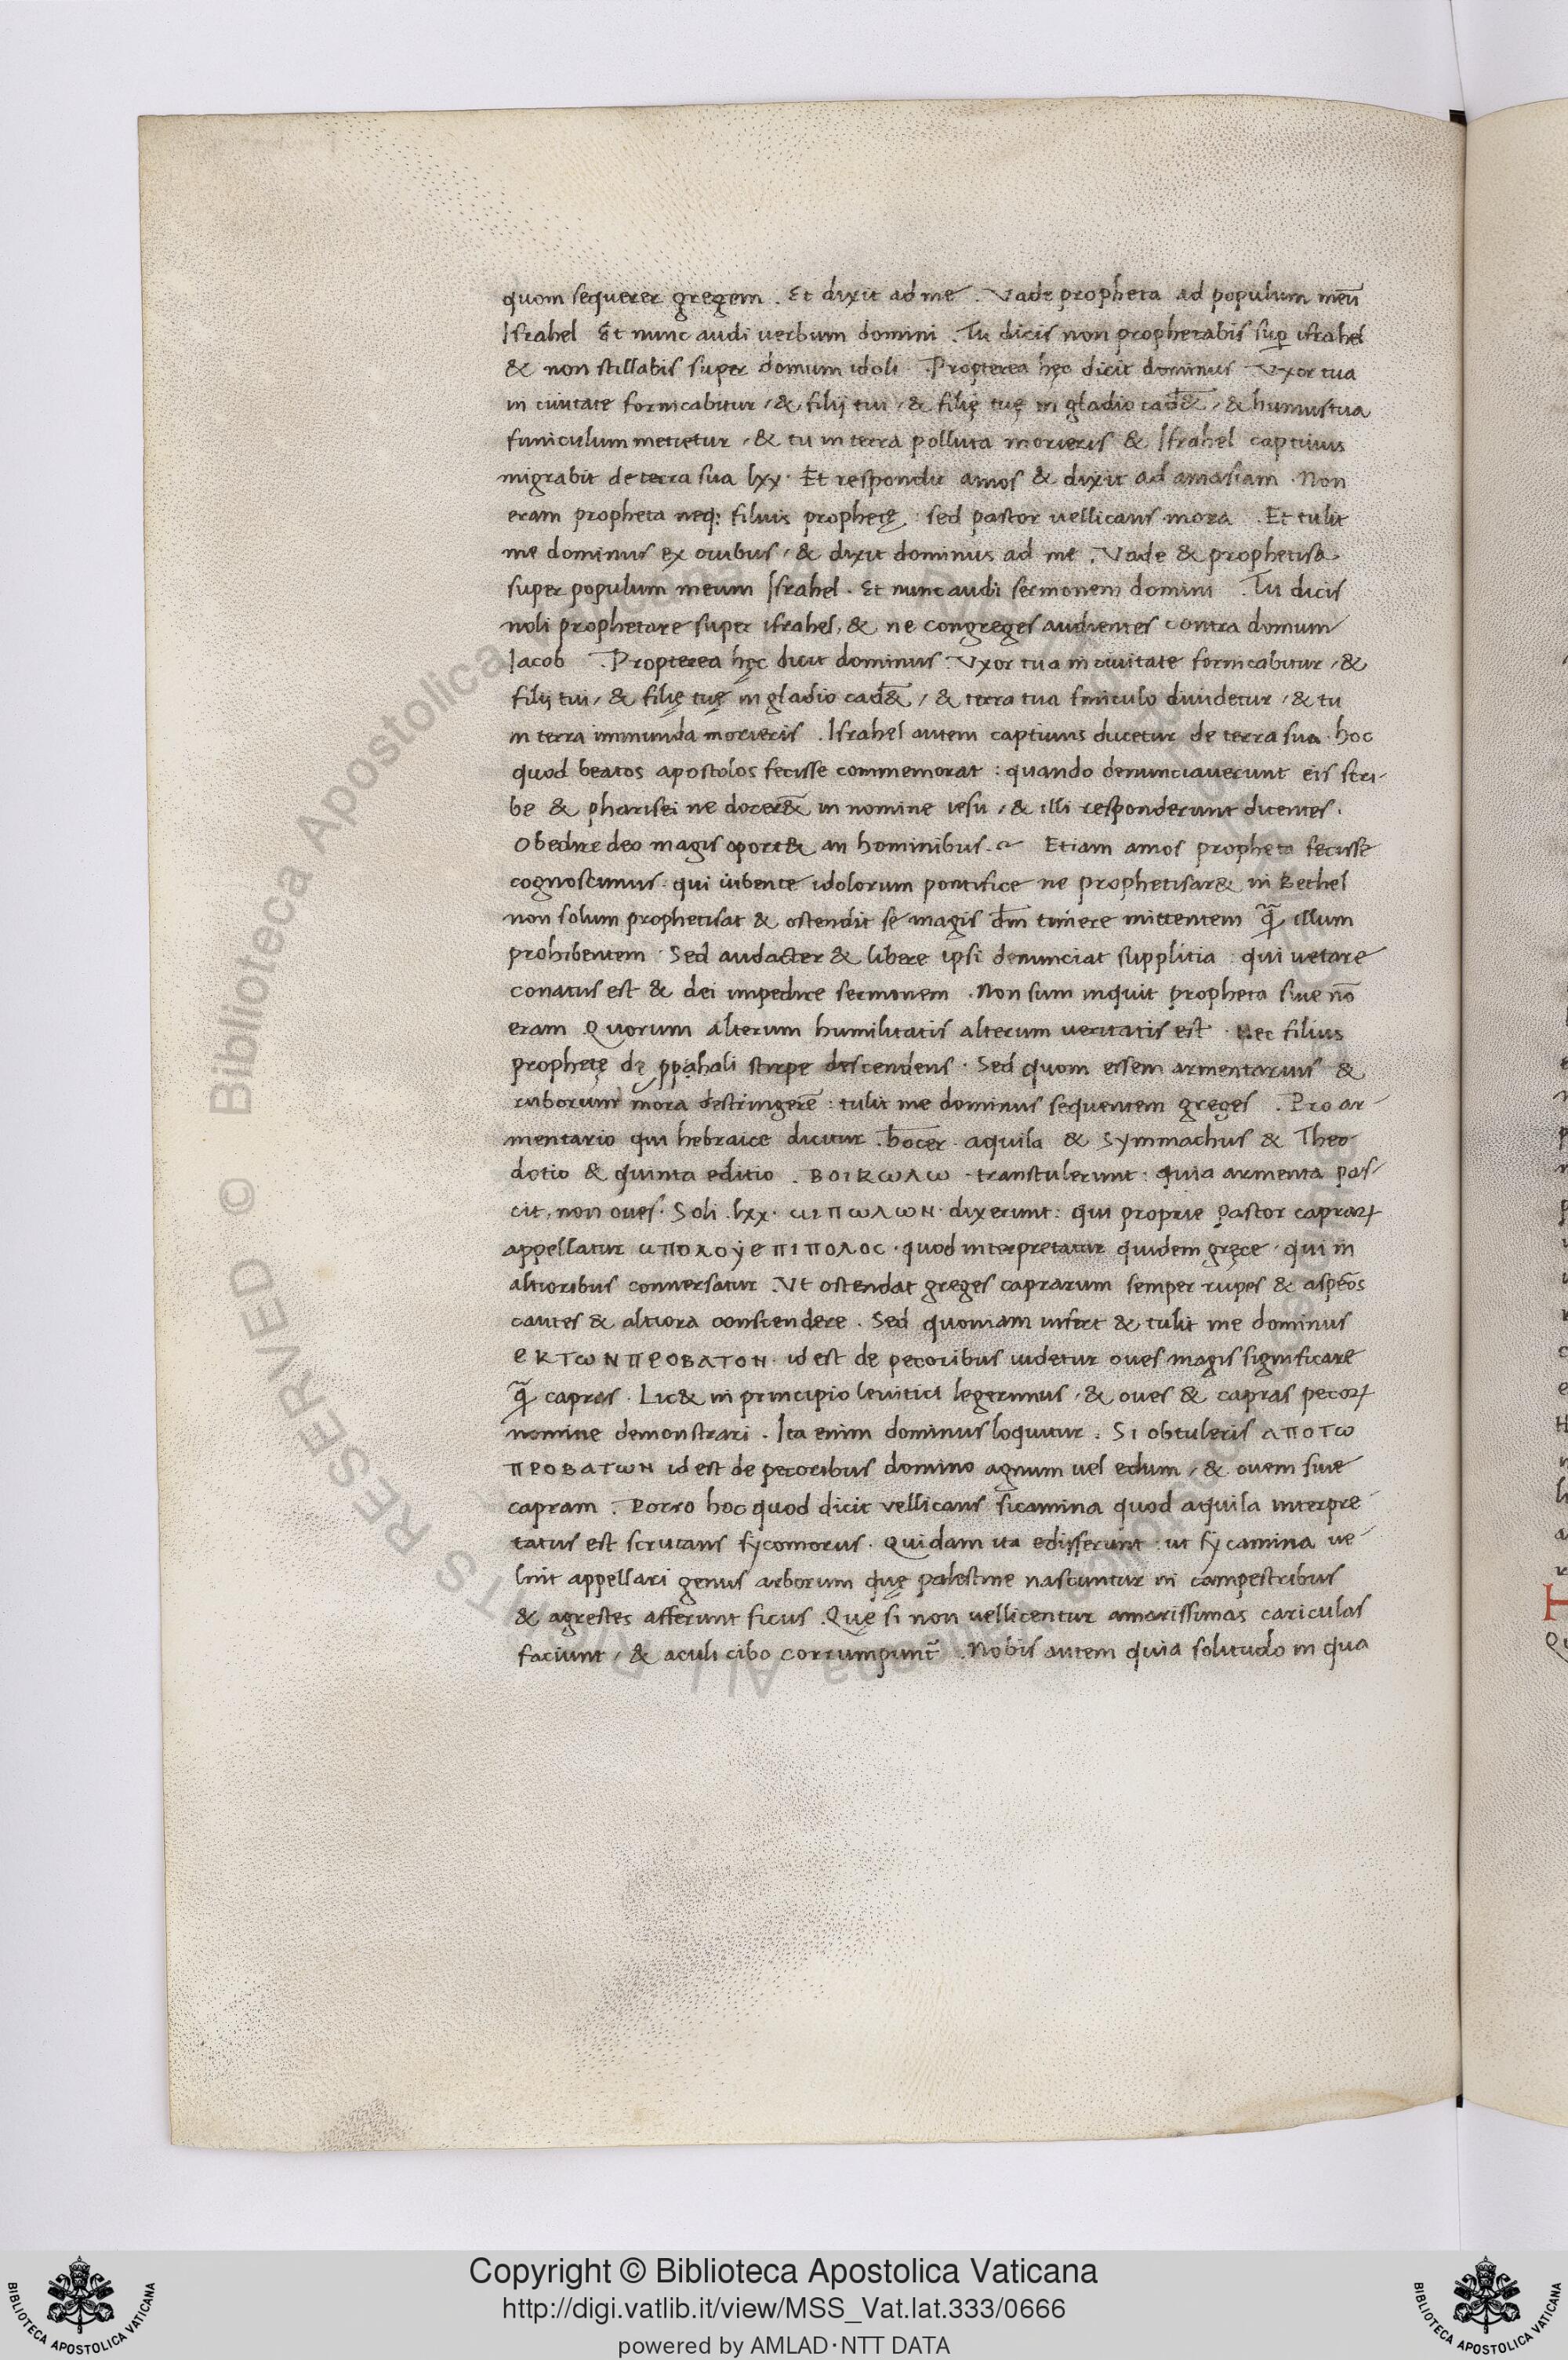 quom sequerer gregem . Et dixit ad me . Vade propheta ad populum meū
Israhel Et nunc audi uerbum domini . Tu dicis non prophetabis suꝑ israhel
& non stillabis super domum idoli . Propterea hęc dicit dominus Vxor tua
in ciuitate fornicabitur / & filij tui / & filię tuę in gladio cad&̄ / & humus tua
funiculum metietur / & tu in terra polluta morieris & Israhel captiuus
migrabit de terra sua lxx . Et respondit amos & dixit ad amasiam . Non
eram propheta neq; filius prophetę : sed pastor uellicans mora . Et tulit
me dominus ex ouibus / & dixit dominus ad me . Vade & prophetisa
super populum meum Israhel . Et nunc audi sermonem domini Tu dicis
noli prophetare super israhel , & ne congreges audientes contra domum
Iacob . Propterea hęc dicit dominus . Vxor tua in ciuitate fornicabitur / &
filij tui / & filię tuę in gladio cad&̄ / & terra tua funiculo diuidetur / & tu
in terra immunda morieris . Israhel autem captiuus ducetur de terra sua . hoc
quod beatos apostolos fecisse commemorat : quando denunciauerunt eis scri-
be & pharisei ne docer&̄ in nomine iesu / & illi responderunt dicentes .
Obedire deo magis oport& an hominibus . Etiam amos propheta fecisse
cognoscimus : qui iubente idolorum pontifice ne prophetisar& in Bethel
non solum prophetisat & ostendit se magis dm̄ timere mittentem q̃ illum
prohibentem . Sed audacter & libere ipsi denunciat supplitia : qui uetare
conatus est & dei impedire sermonem . Non sum inquit propheta siue nō
eram Quorum alterum humilitatis alterum ueritatis est . Nec filius
prophetę de ꝓphali stirpe descendens . Sed quom essem armentarius &
ruborum mora destringerē : tulit me dominus sequentem greges . Pro ar-
mentario qui hebraice dicitur . bocer . aquila & Symmachus & Theo-
dotio & quinta editio . ΒΟΙΚωΛω . transtulerunt : quia armenta pas-
cit , non oues . Soli . lxx . αιπωλωΝ . dixerunt : qui proprie pastor caprarꝝ
appellatur απολογεπιπολος . quod interpretatur quidem gręce . qui in
altioribus conuersatur . Vt ostendat greges caprarum semper rupes & asꝑos
cautes & altiora conscendere . Sed quoniam infert & tulit me dominus
eΚΤωΝΠΡΟΒΑΤΟΝ . id est de pecoribus uidetur oues magis significare
q̃ capras . Lic& in principio leuitici legerimus / & oues & capras pecorꝝ
nomine demonstrari . Ita enim dominus loquitur . Si obtuleris αποτω
ΠΡΟΒΑΤωΝ id est de pecoribus domino agnum uel edum / & ouem siue
capram . Porro hoc quod dicit uellicans sicamina quod aquila interpre-
tatus est scrutans sycomorus . Quidam ita edisserunt : ut sycamina ue-
lint appellari genus arborum quę palestine nascuntur in campestribus
& agrestes afferunt ficus . Quę si non uellicentur amarissimas cariculas
faciunt / & aculi cibo corrumpunt̃ . Nobis autem quia solitudo in qua
Copyright © Biblioteca Apostolica Vaticana
http://digi.vatlib.it/view/MSS_Vat.lat.333/0666
powered by AMLAD·NTT DATA